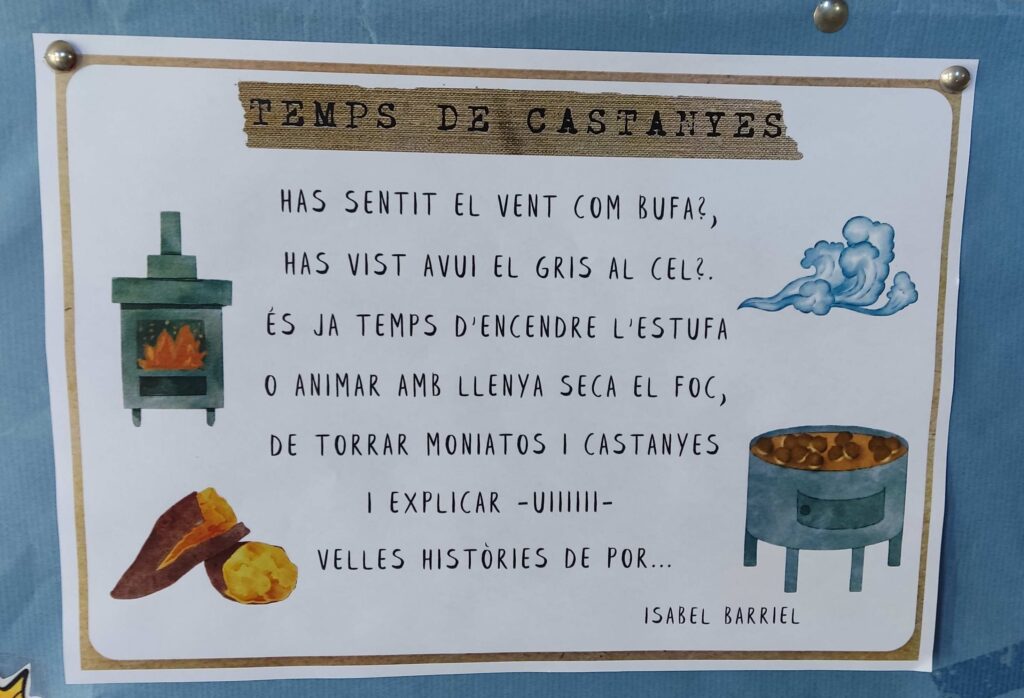 TEMPS DE CASTANYES
HAS SENTIT EL VENT COM BUFA?,
HAS VIST AVUI EL GRIS AL CEL?.
ÉS JA TEMPS D'ENCENDRE L'ESTUFA
O ANIMAR AMB LLENYA SECA EL FOC,
DE TORRAR MONIATOS I CASTANYES
I EXPLICAR -UIIIIII-
VELLES HISTÒRIES DE POR...
ISABEL BARRIEL